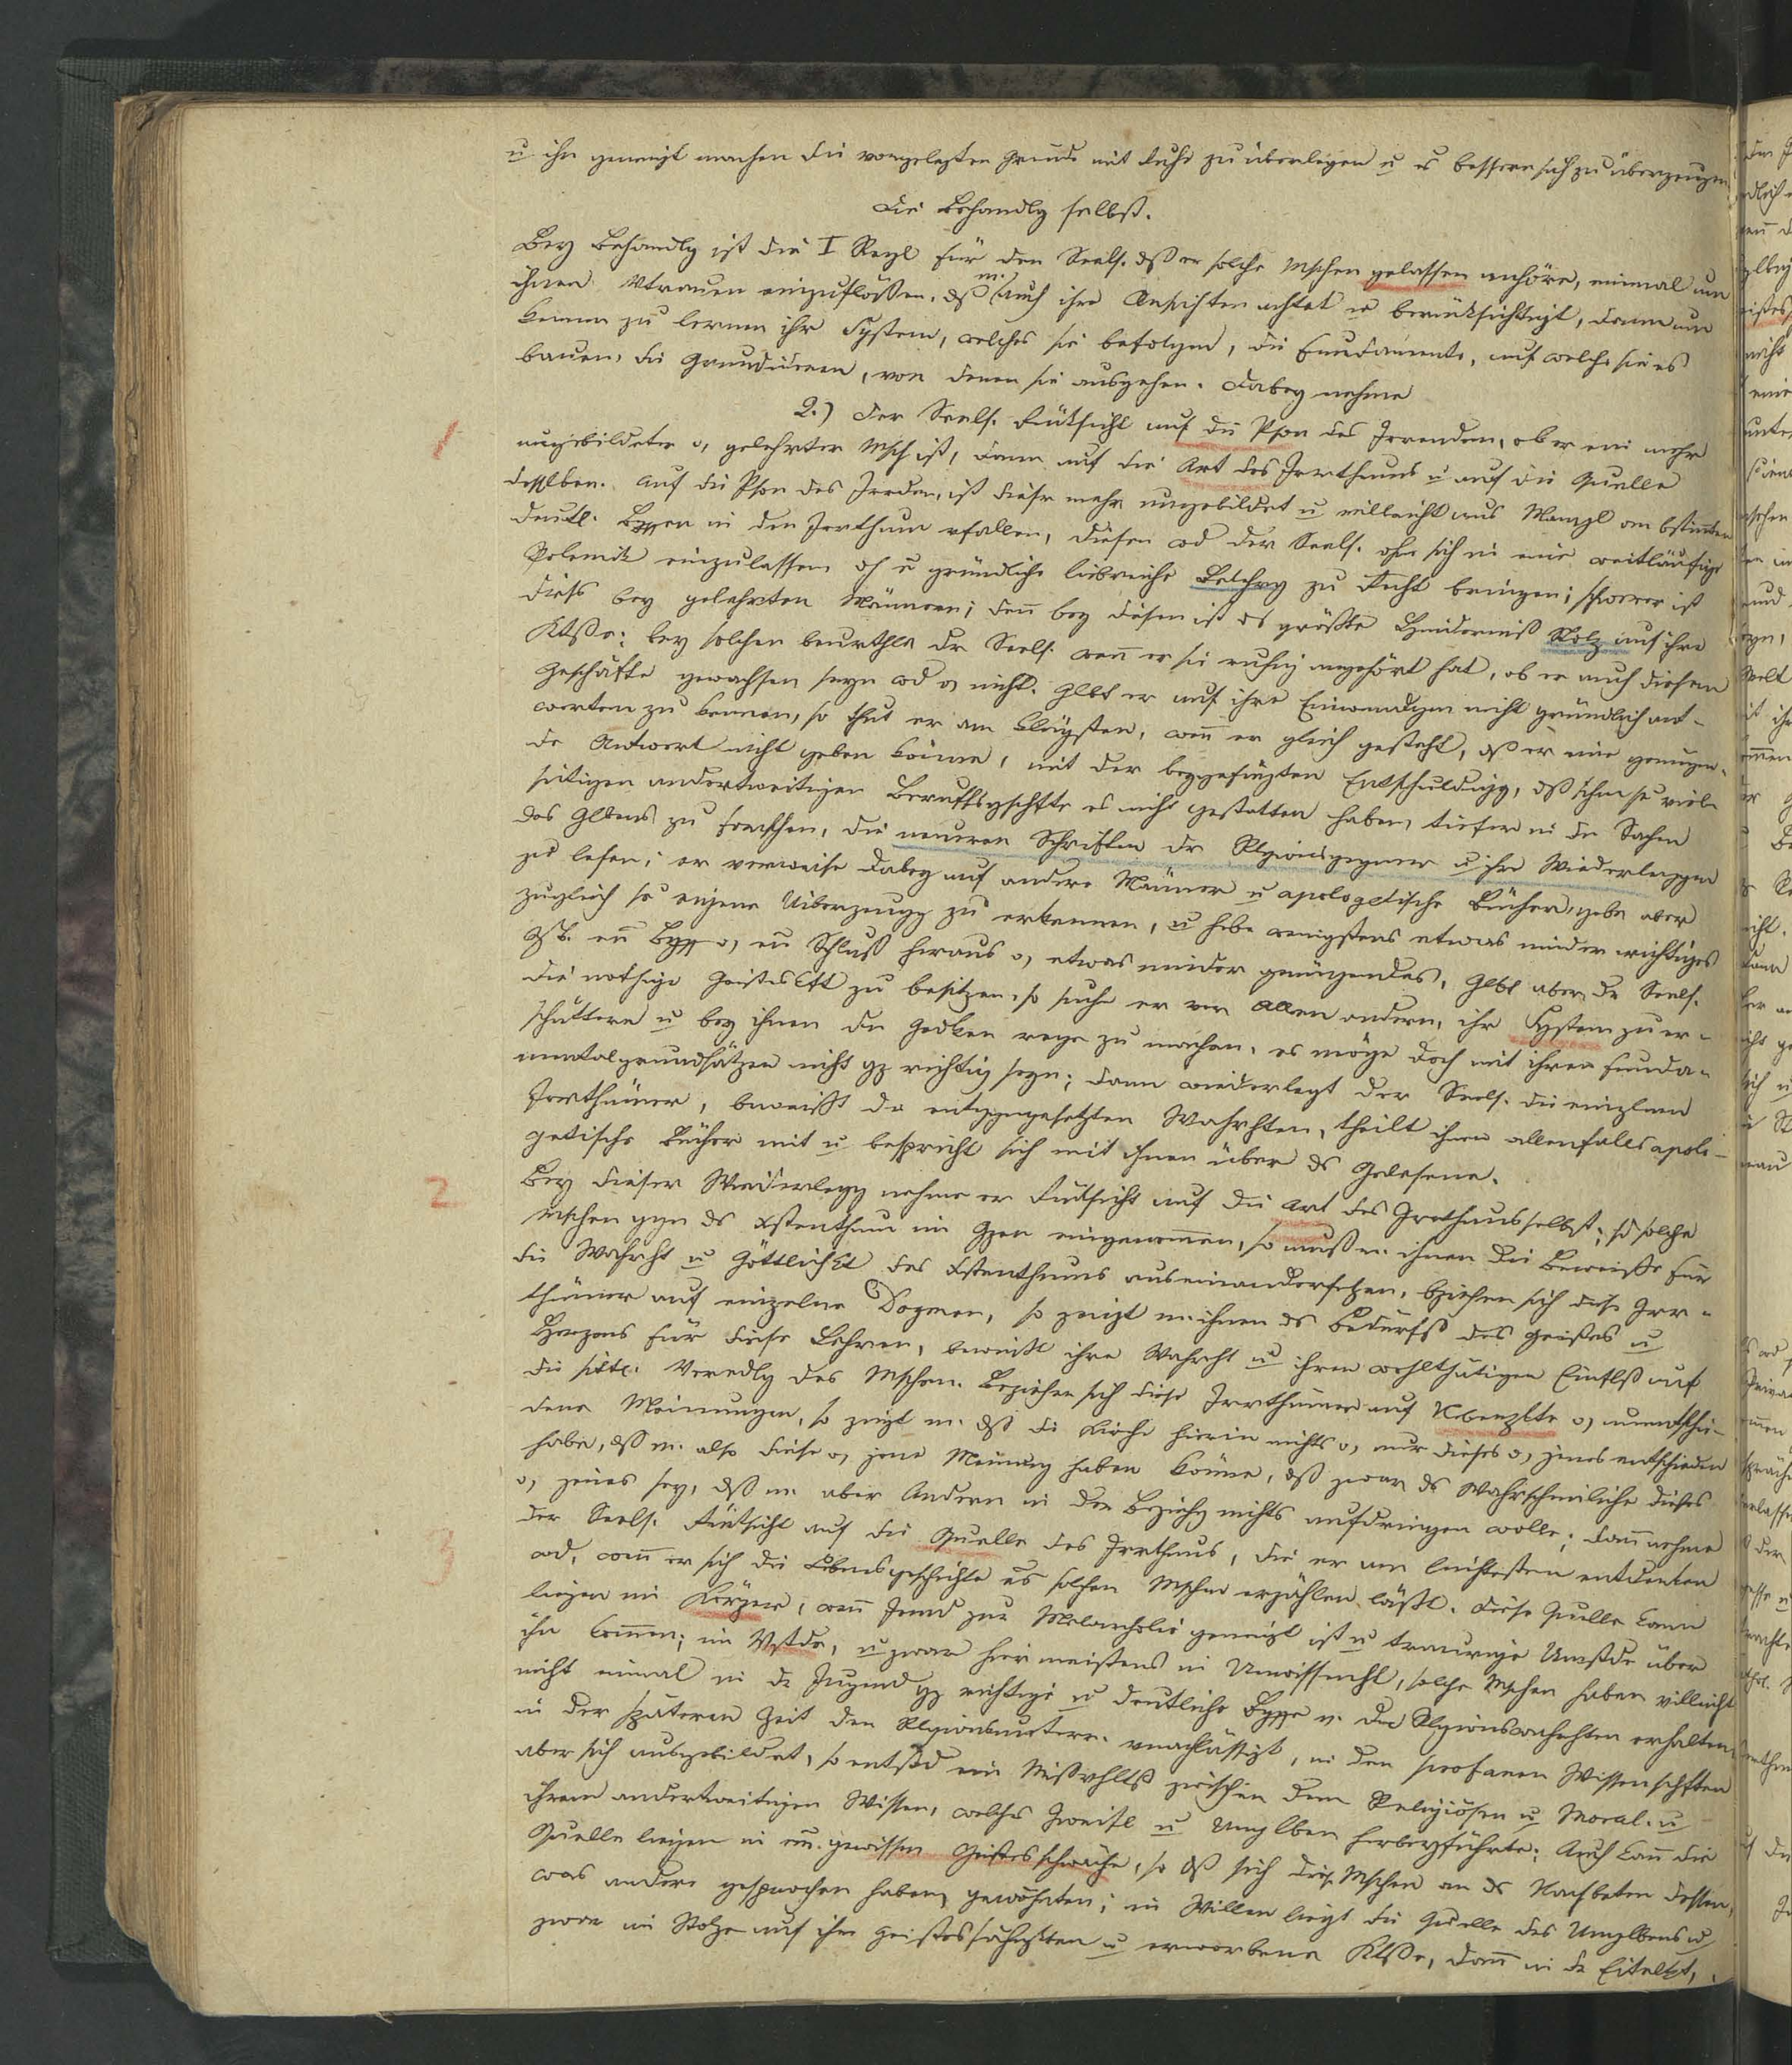 u ihn geneigt machen die vorgelegten Gründe mit Ruhe zu überlegen u es bessern sich zu überzeugen
Die Behandlg selbst.
Bey Behandlg ist die I Regl für den Seels. dß er solche Mschen gelassen anhöre, einmal um
ihnen Vtrauen einzuflößen, dß m. auch ihre Ansichten achtet u berücksichtigt, dann um
kennen zu lernen ihr System, welches sie befolgen, die Fundamente, auf welche sie es
bauen, die Grundideen, von denen sie ausgehen. Dabey nehme
1 2.) der Seels. Rücksicht auf die Pson des Irrenden, ob er ein mehr
ungebildeter o, gelehrter Msch ist, dann auf die Art des Irrthums u auf die Quelle
desslben. Auf die Pson des Irrden, ist dieser mehr ungebildet u villeicht aus Mangl an bstimten
deutl. Bgffen in den Irrthum vfallen, diesen wd der Seels. ohne sich in eine weitläufige
Polemik einzulassen dch gründliche liebreiche Belehrg zu Recht bringen; schwerer ist
dieß bey gelehrten Männern; den bey diesen ist ds größte Hinderniß Stolz auf ihre
Ktße: bey solchen beurthle dr Seels. wen er sie ruhig angehört hat, ob er auch diesem
Geschäfte gewachsen seyn wd o, nicht. Glbt er auf ihre Einwendgen nicht gründlich ant-
worten zu können, so thut er am klügsten, wen er gleich gesteht, dß er eine genügen-
de Antwort nicht geben könne, mit der beygefügten Entschuldigg, dß ihm so viele
seitigen anderweitigen Beruffsgschfte es nicht gestatten haben, tiefer in die Sachen
des Glbens zu forschen, die neueren Schriften der Rlgionsgegner u ihre Wiederleggen
zu lesen; er verweise dabey auf andere Männer u apologetische Bücher, gebe aber
zugleich so eigene Uiberzeugg zu erkennen, u hebe wenigstens etwas minder wichtiges
z.B. en Bgff o, en Schluß heraus o, etwas minder genügendes. Glbt aber dr Seels.
die nothige Geisteskft zu besitzen, so suche er vor Allen andern, ihr System zu er-
schüttern u bey ihnen den Gedken rege zu machen, es möge doch mit ihren funda-
mentalgrundsätzen nicht gz richtig seyn; dann wiederlegt der Seels. die einzlnen
Irrthümer, beweißt die entggengesetzten Wahrhten, theilt ihnen allenfalls apolo-
getische Bücher mit u bespricht sich mit ihnen über ds Gelesene.
2 Bey dieser Wiederlegg nehme er Rücksicht auf die Art des Irrthums selbst; sd solche
Mschen ggen ds Xstenthum im Gzen eingenommen, so muß m. ihnen die Beweise für
die Wahrht u Göttlichkt des Xstenthums auseinandersetzen, bziehen sich diese Irr-
thümer auf einzelne Dogmen, so zeigt m. ihnen ds Bedürfß des Geistes u
Herzens für diese Lehren, beweißt ihre Wahrht u ihren wohlthätigen Einflß auf
die sittl. Veredlg des Mschen. Beziehen sich diese Irrthümer auf Nbenpkte o, unentschie-
dene Meinungen, so zeigt m. dß die Kirche hierin nichts o, nur dieses o, jenes entschieden
habe, dß m. also diese o, jene Meinung haben könne, dß zwar ds Wahrscheinliche dieses
o, jenes sey, dß m. aber Andern in der Beziehg nichts aufdringen wolle; dann nehme
3 der Seels. Rücksicht auf die Quelle des Irrthums, die er am leichtesten entdecken
wd, wen er sich die Lebensgeschichte es solchen Mschen erzählen läßt. Diese Quelle kann
liegen im Körper, wen Jemd zur Melancholie geneigt ist u traurige Umstde über
ihn kommen; im Vstde, u zwar hier meistens in Unwissenht, solche Mschen haben villeicht
nicht einmal in dr Jugend gz richtige u deutliche Bgffe v. den Rlgionswahrhten erhalten,
in der späteren Zeit den Rlgionsunterr. vnachlässigt, in den profanen Wissenschften
aber sich ausgebildet, so entstd ein Mißvhltß zwischen dem Religiösen u Moral. u
ihrem anderweitigen Wissen, welches Zweifl u Unglben herbeyführte; Auch kann die
Quelle liegen in en. gewissen Geistesschwäche, so dß sich diese Mschen an ds Nachbeten dessen,
was andere gesprochen haben, gewöhnten; im Willen liegt die Quelle des Unglbens u
zwar im Stolze auf ihre Geistesfähigkten u erworbene Ktße, dann in dr Eitelkt,